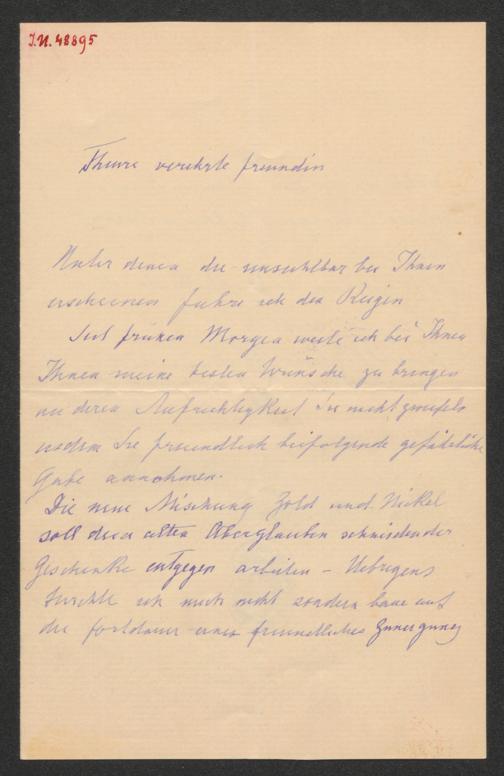 I.N. 48895
Theure verehrte freundin
Unter denen die unsichtbar bei Ihnen
erscheinen führe ich den Reigen
Seit frühen Morgen weile ich bei Ihnen
Ihnen meine besten Wünsche zu bringen
an deren Aufrichtigkeit Sie nicht zweifeln
indem Sie freundlich beifolgende gefährliche
Gabe annehmen.
Die neue Mischung Gold und Nickel
soll dem alten Aberglauben schneidender
Geschenke entgegen arbeiten – Uebrigens
fürchte ich mich nicht sondern baue auf
die fortdauer einer freundlichen Zuneigung